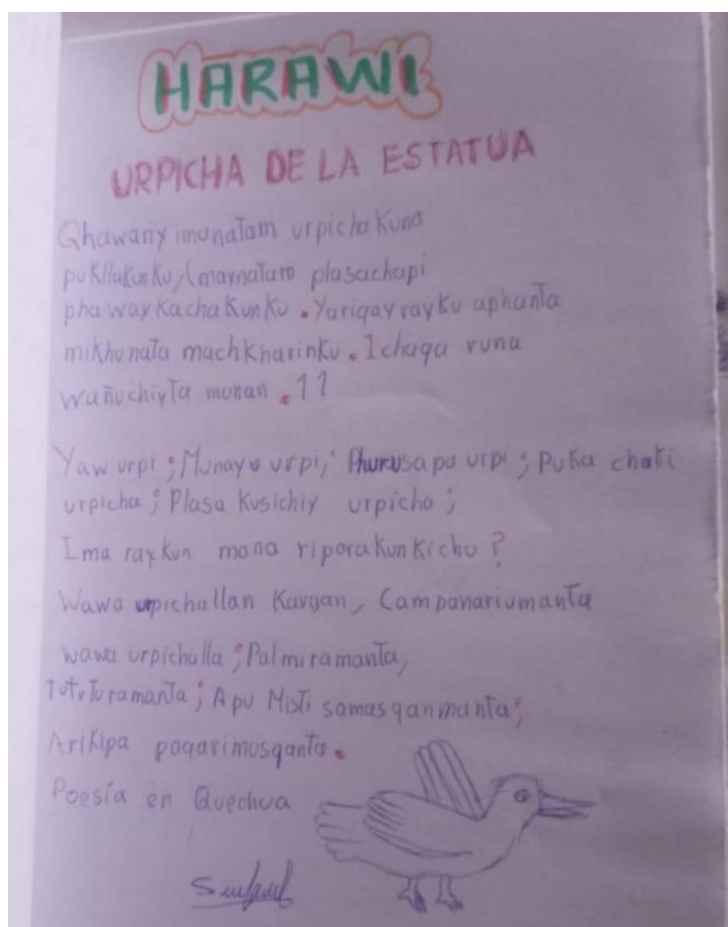 HARAWI
URPICHA DE LA ESTATUA
Qhawariy imanatam urpichakuna
pukllakunku, Imaynataro plasachapi
phawaykachakunku. Yariqayrayku aphanta
mikhunata machkharinku. Ichaqa runa
wañuchiyta munan. 11
Yaw urpi; Munayu urpi; Phurusapa urpi; Puka chaki
urpicha; Plasa Kusichiy urpicha;
Ima raykun mana riporakunkichu?
Wawa urpichallan Kavgan, Campanariumanta
wawa urpichalla; Palmiramanta,
Tututuramanta; Apu Misti samasqanmanta;
Arikipa paqarimusqanta.
Poesía en Quechua